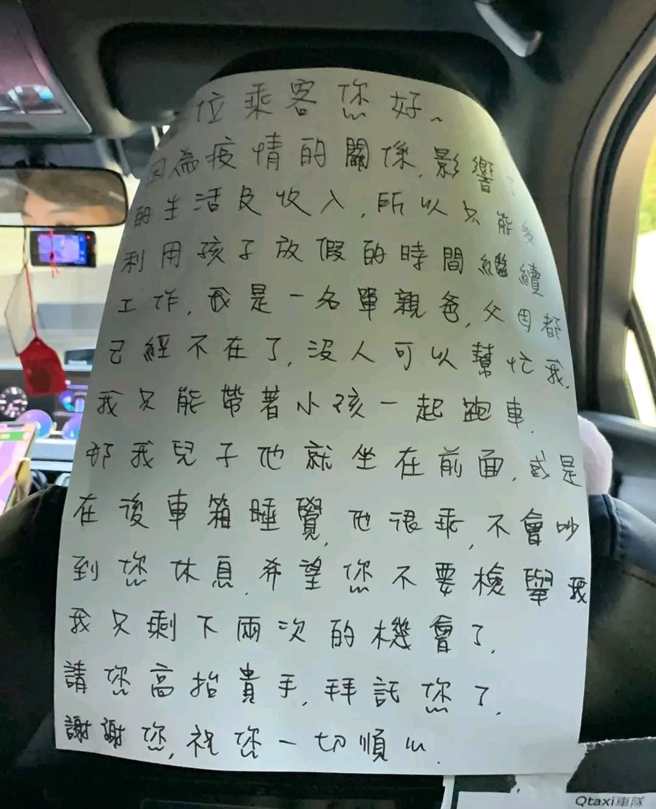 位乘客您好~
因為疫情的關係,影響了
的生活及收入,所以只能多
利用孩子放假的時間繼續
工作,我是一名單親爸,父母都
已經不在了,沒人可以幫忙我,
我只能帶著小孩一起跑車,
那我兒子他就坐在前面,或是
在後車箱睡覺,他很乖,不會吵
到您休息,希望您不要檢舉我
我只剩下兩次的機會了,
請您高抬貴手,拜託您了,
謝謝您,祝您一切順心.
Qtaxi車隊